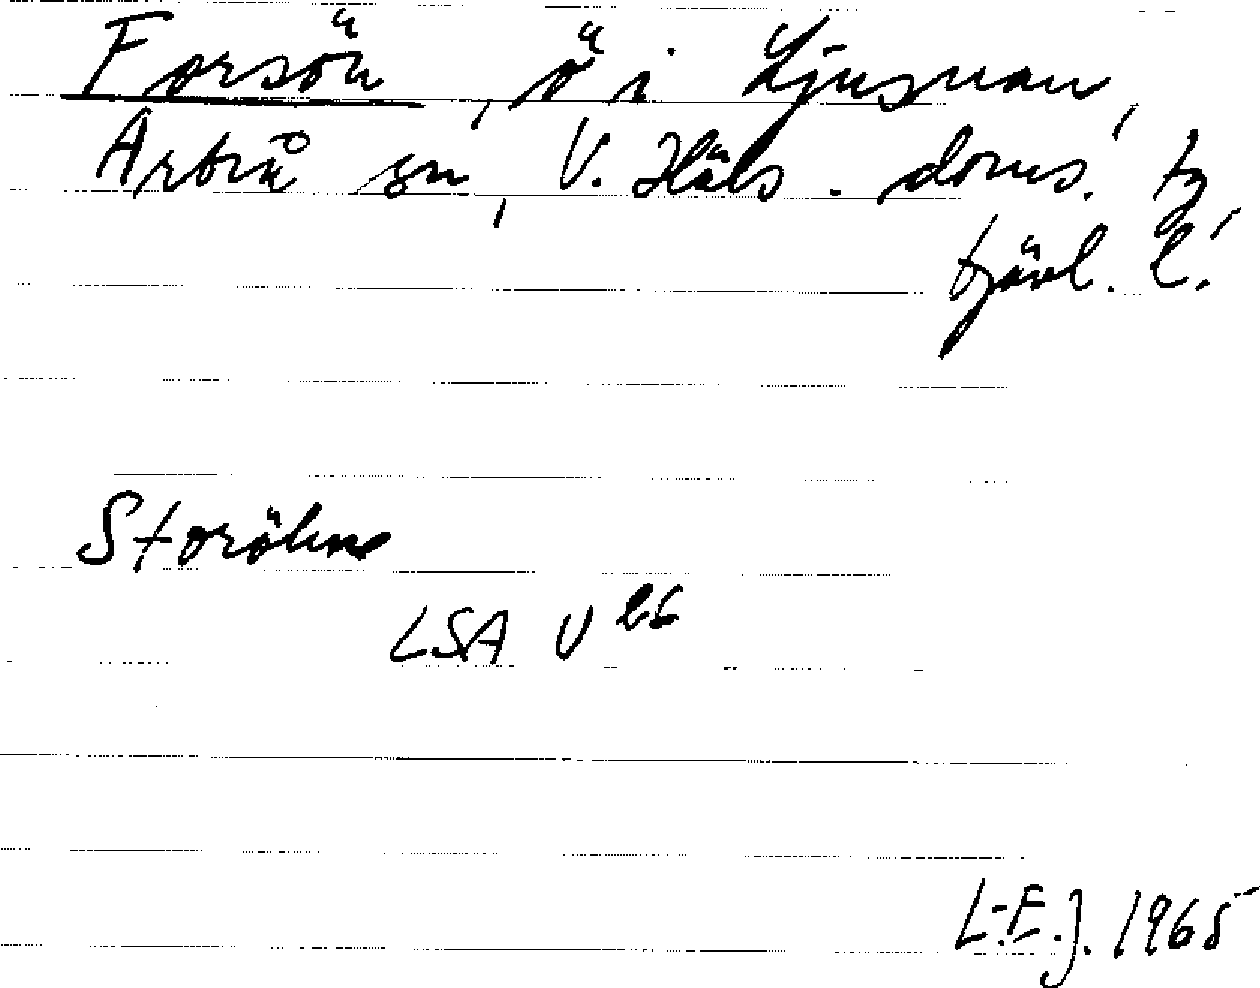 Forsön, ö i Ljusnan,
Arbrå sn, V. Häls. doms. tg,
Gävl. l.
Storöhn
LSA U 26
L-E.J. 1965